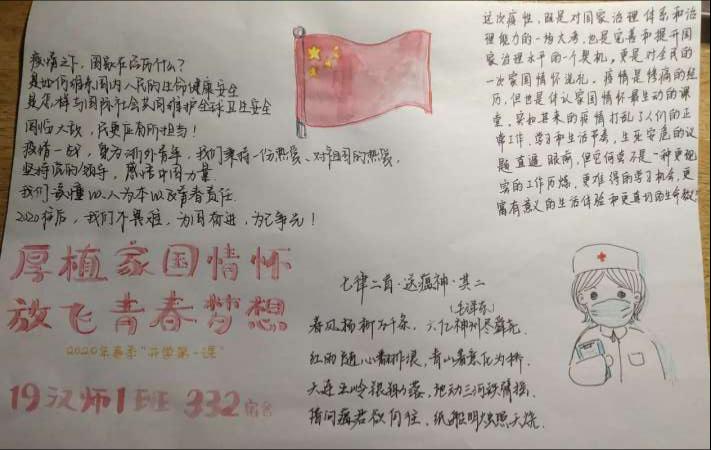 疫情之下，国家在经历什么？
是如何维系国内人民的生命健康安全
是怎样与国际社会共同维护全球卫生安全
国临大敌，民更应有所担当！
疫情一战，身为浙外青年，我们秉持一份热爱、对祖国的热爱，
坚持党的领导，感悟中国力量
我们读懂以人为本以及青春责任
2020往后，我们不畏难，为国奋进，为己争光！
这次疫情，既是对国家治理体系和治
理能力的一场大考，也是完善和提升国
家治理水平的一个契机，更是对全民的
一次家国情怀洗礼。疫情是惨痛的经
历，但也是体认家国情怀最生动的课
堂。突如其来的疫情打乱了人们的正
常工作、学习和生活节奏，生死安危的议
题直逼眼前，但它何尝不是一种更现
实的工作历炼，更难得的学习机会，更
富有意义的生活体验和更真切的生命教
厚植家国情怀
放飞青春梦想
2020年春季"开学第一课"
19汉师1班 332宿舍
七律二首·送瘟神·其二
（毛泽东）
春风杨柳万千条，六亿神州尽舜尧。
红雨随心翻作浪，青山着意化为桥。
天连五岭银锄落，地动三河铁臂摇。
借问瘟君欲何往，纸船明烛照天烧。